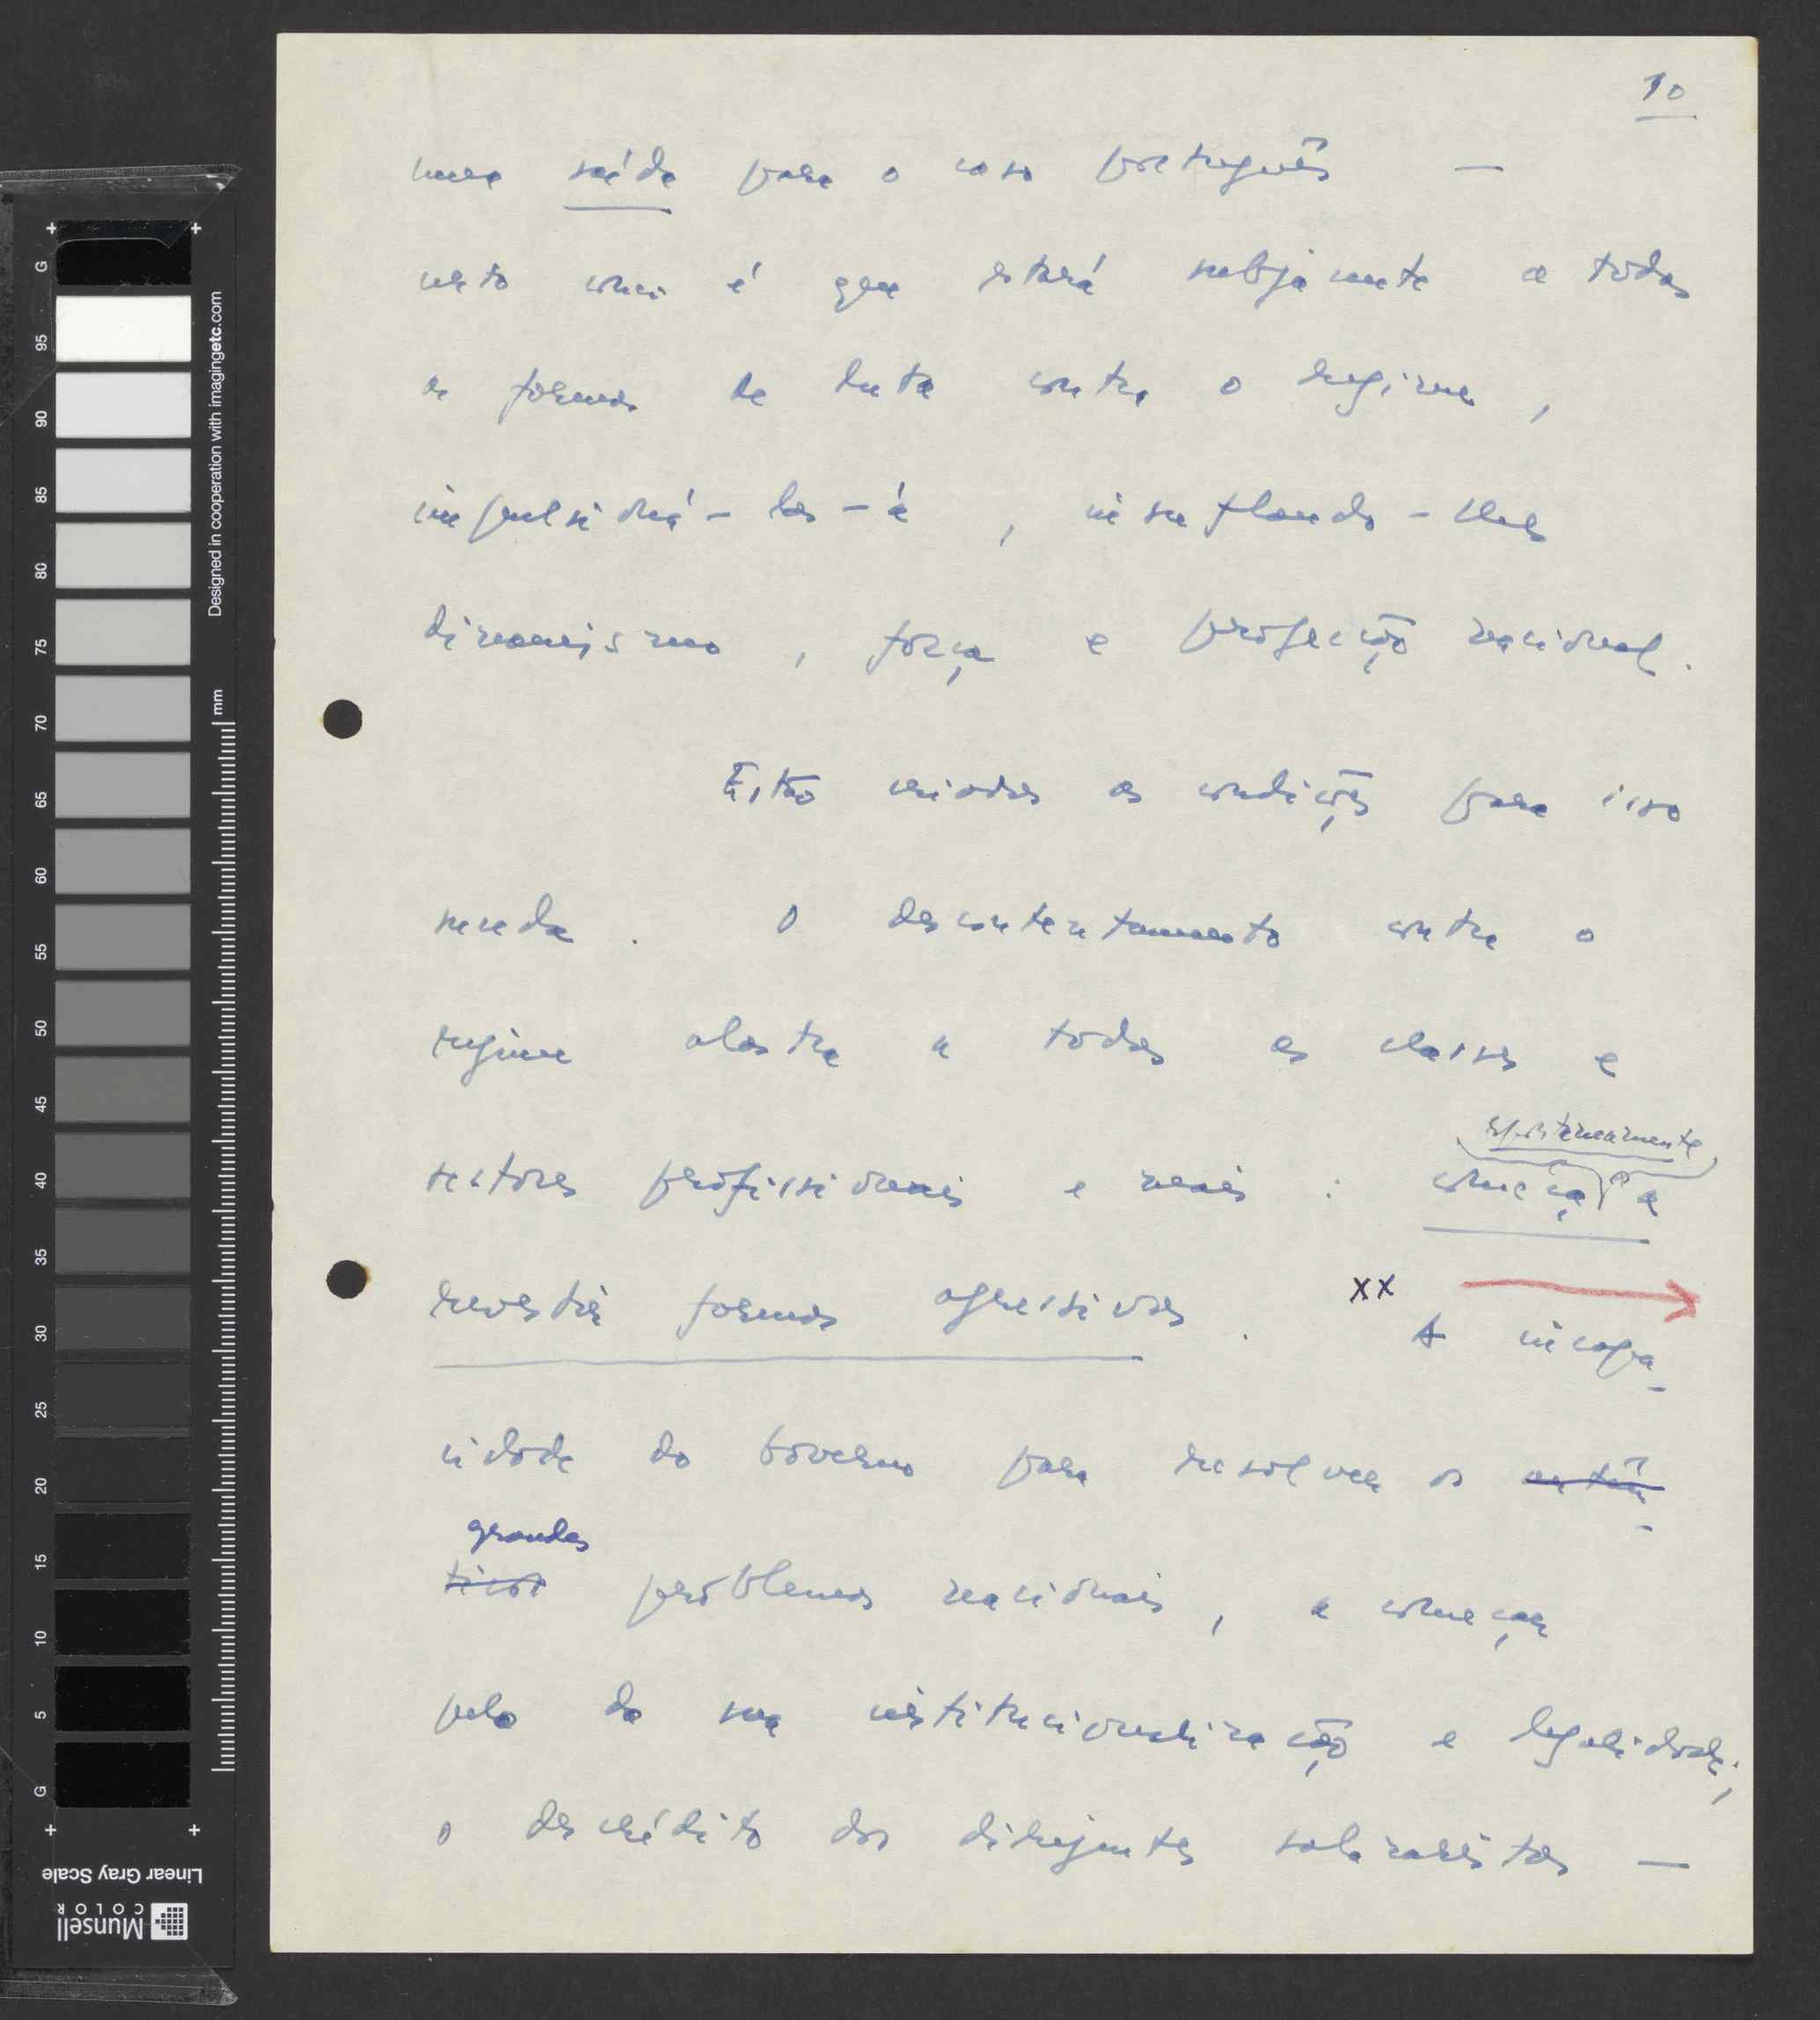 10
uma saída para o caso português —
certo como é que estará subjacente a todas
as formas de luta contra o regime,
impulsioná-las-á, insuflando-lhes
dinamismo, força e projecção nacional.
Estão criadas as condições para isso
suceda. O descontentamento contra o
regime alastra a todas as classes e
espontâneamente
sectores profissionais e reais : começa a
revestir formas agressivas. xx A incapa-
cidade do Governo para resolver os autên-
grandes
ticos problemas nacionais, a começar
pelo da sua institucionalização e legalidade;
o descrédito dos dirigentes salazaristas —
G
95
90
85
80
75
70
65
60
55
50
45
40
35
30
25
20
15
10
5
G
mm
Designed in cooperation with imagingetc.com
Linear Gray Scale
Munsell
COLOR